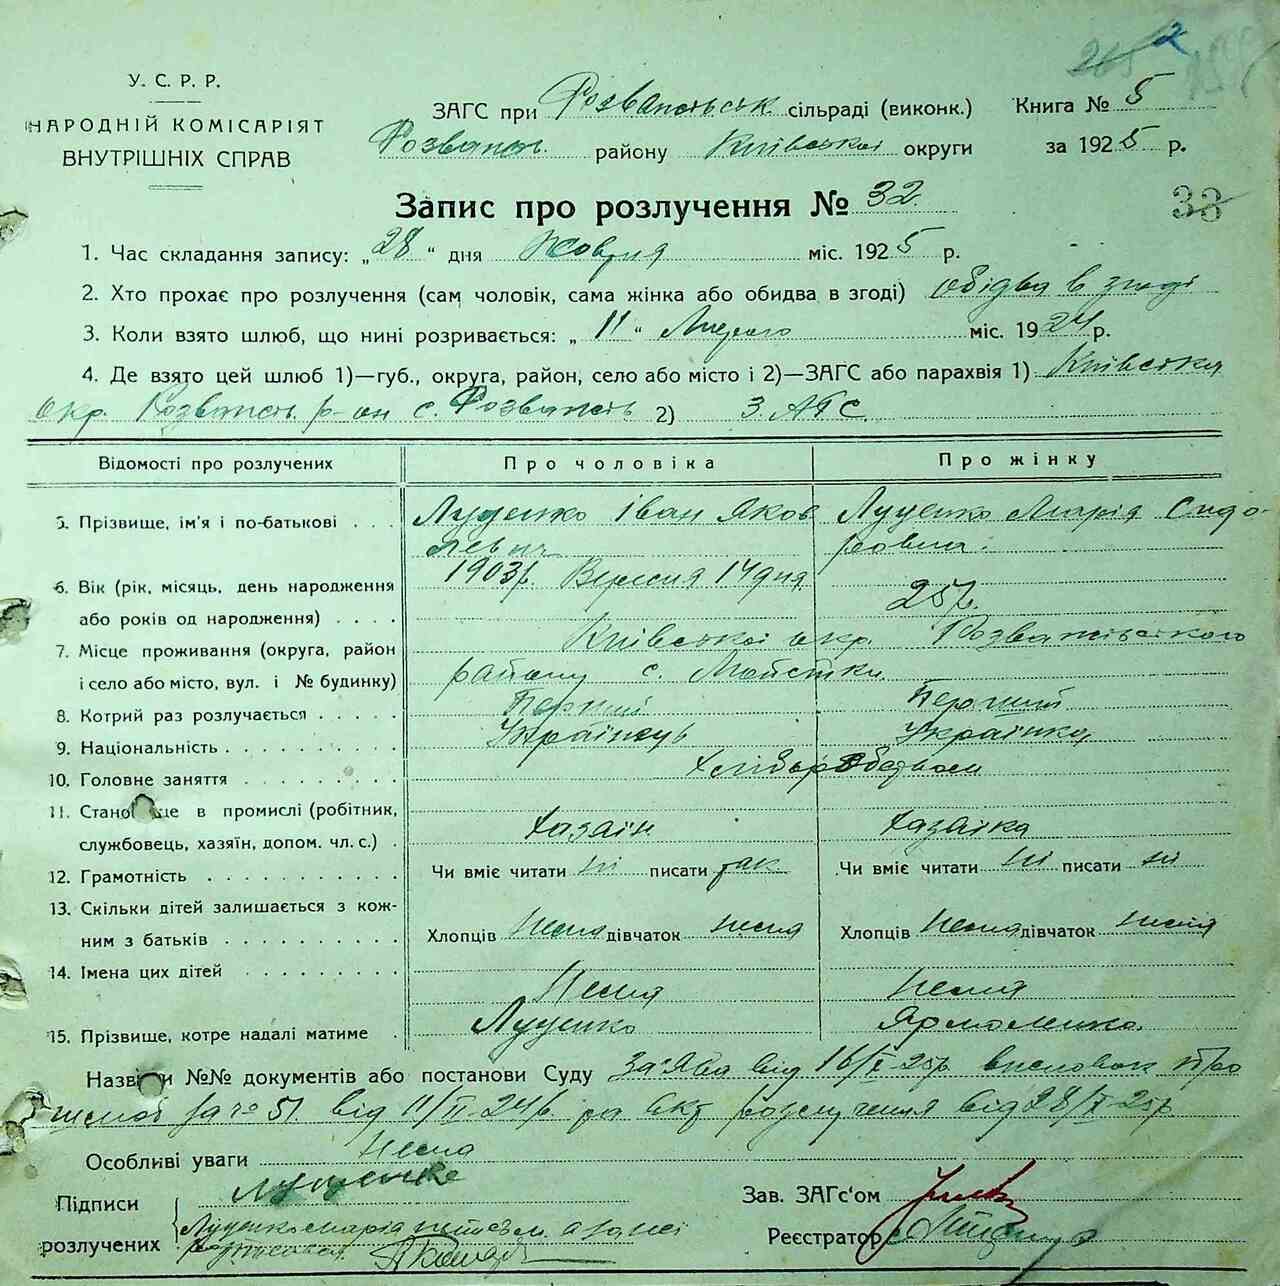 У. С. Р. Р.
НАРОДНІЙ КОМІСАРІЯТ
ВНУТРІШНІХ СПРАВ
ЗАГС при Розважівськ сільраді (виконк.) Книга № 5
Розваж. району Київської округи за 1925 р.
Запис про розлучення № 32
33
1. Час складання запису: „28“ дня Жовтня міс. 1925 р.
2. Хто прохає про розлучення (сам чоловік, сама жінка або обидва в згоді) обідва в згоді
3. Коли взято шлюб, що нині розривається: „11“ Лютого міс. 1924 р.
4. Де взято цей шлюб 1)—губ., округа, район, село або місто і 2)—ЗАГС або парахвія 1) Київська
окр. Розважів. р-он с. Розважів 2) ЗАГС
Відомості про розлучених Про чоловіка Про жінку
5. Прізвище, ім'я і по-батькові . . . Луценко Іван Яков Луценко Марія Сидо-
левич ровна.
6. Вік (рік, місяць, день народження 1903 р. Вересня 14 дня 25 р.
або років од народження) . . . .
7. Місце проживання (округа, район Київської окр. Розважівського
і село або місто, вул. і № будинку) району с.
8. Котрий раз розлучається . . . . . Перший Перший
9. Національність . . . . . . . . . . Українець Українка
10. Головне заняття . . . . . . . . . Хліборобством
11. Становище в промислі (робітник,
службовець, хазяїн, допом. чл. с.) . Хазаїн Хазаїка
12. Грамотність . . . . . . . . . . Чи вміє читати ні писати так Чи вміє читати ні писати ні
13. Скільки дітей залишається з кож-
ним з батьків . . . . . . . . . Хлопців нема дівчаток нема Хлопців нема дівчаток нема
14. Імена цих дітей . . . . . . . . . Нема нема
15. Прізвище, котре надалі матиме . Луценко Ярмоленко
Назви №№ документів або постанови Суду За'ява від 16/X-25р. висновок про
шлюб за № 51 від 11/II-24 р. та акт розлучення від 28/X-25р
Особливі уваги Нема
Підписи Луценко Зав. ЗАГс'ом
розлучених Луценко Марія а за неї Реєстратор